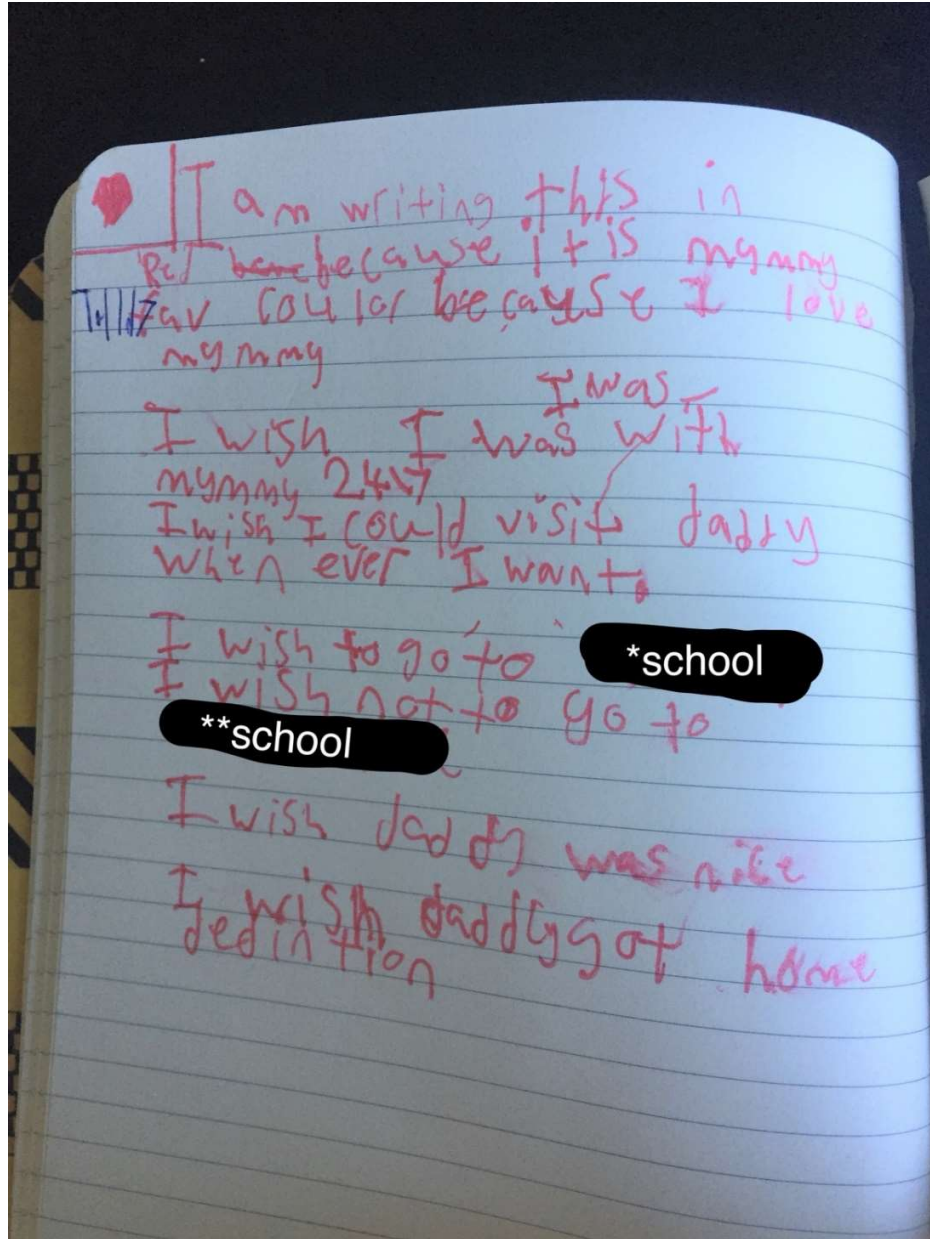 I am writing this in
Red because it is mymmy
fav coulor because I love
mymmy
I was
I wish I was with
mymmy 24\7
I wish I could visit daddy
when ever I want.
I wish to go to *school
I wish not to go to
**school
I wish daddy was nice
I wish daddy got home
dedintion